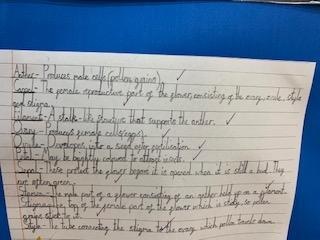 Anther - Produces male cells (pollen grains)
Carpel - The female reproductive part of the flower, consisting of the ovary, ovule, style
and stigma.
Filament - A stalk-like structure that supports the anther.
Ovary - Produces female cells (eggs)
Ovule - Developes into a seed after fertilisation
Petal - May be brightly colored to attract insects.
Sepal - These protect the flower before it is opened when it is still a bud. They
are often green.
Stamen - The male part of a flower consisting of an anther held up on a filament.
Stigma - The top of the female part of the flower which is sticky, so pollen
grains stick to it.
Style - The tube connecting the stigma to the ovary which pollen travels down.